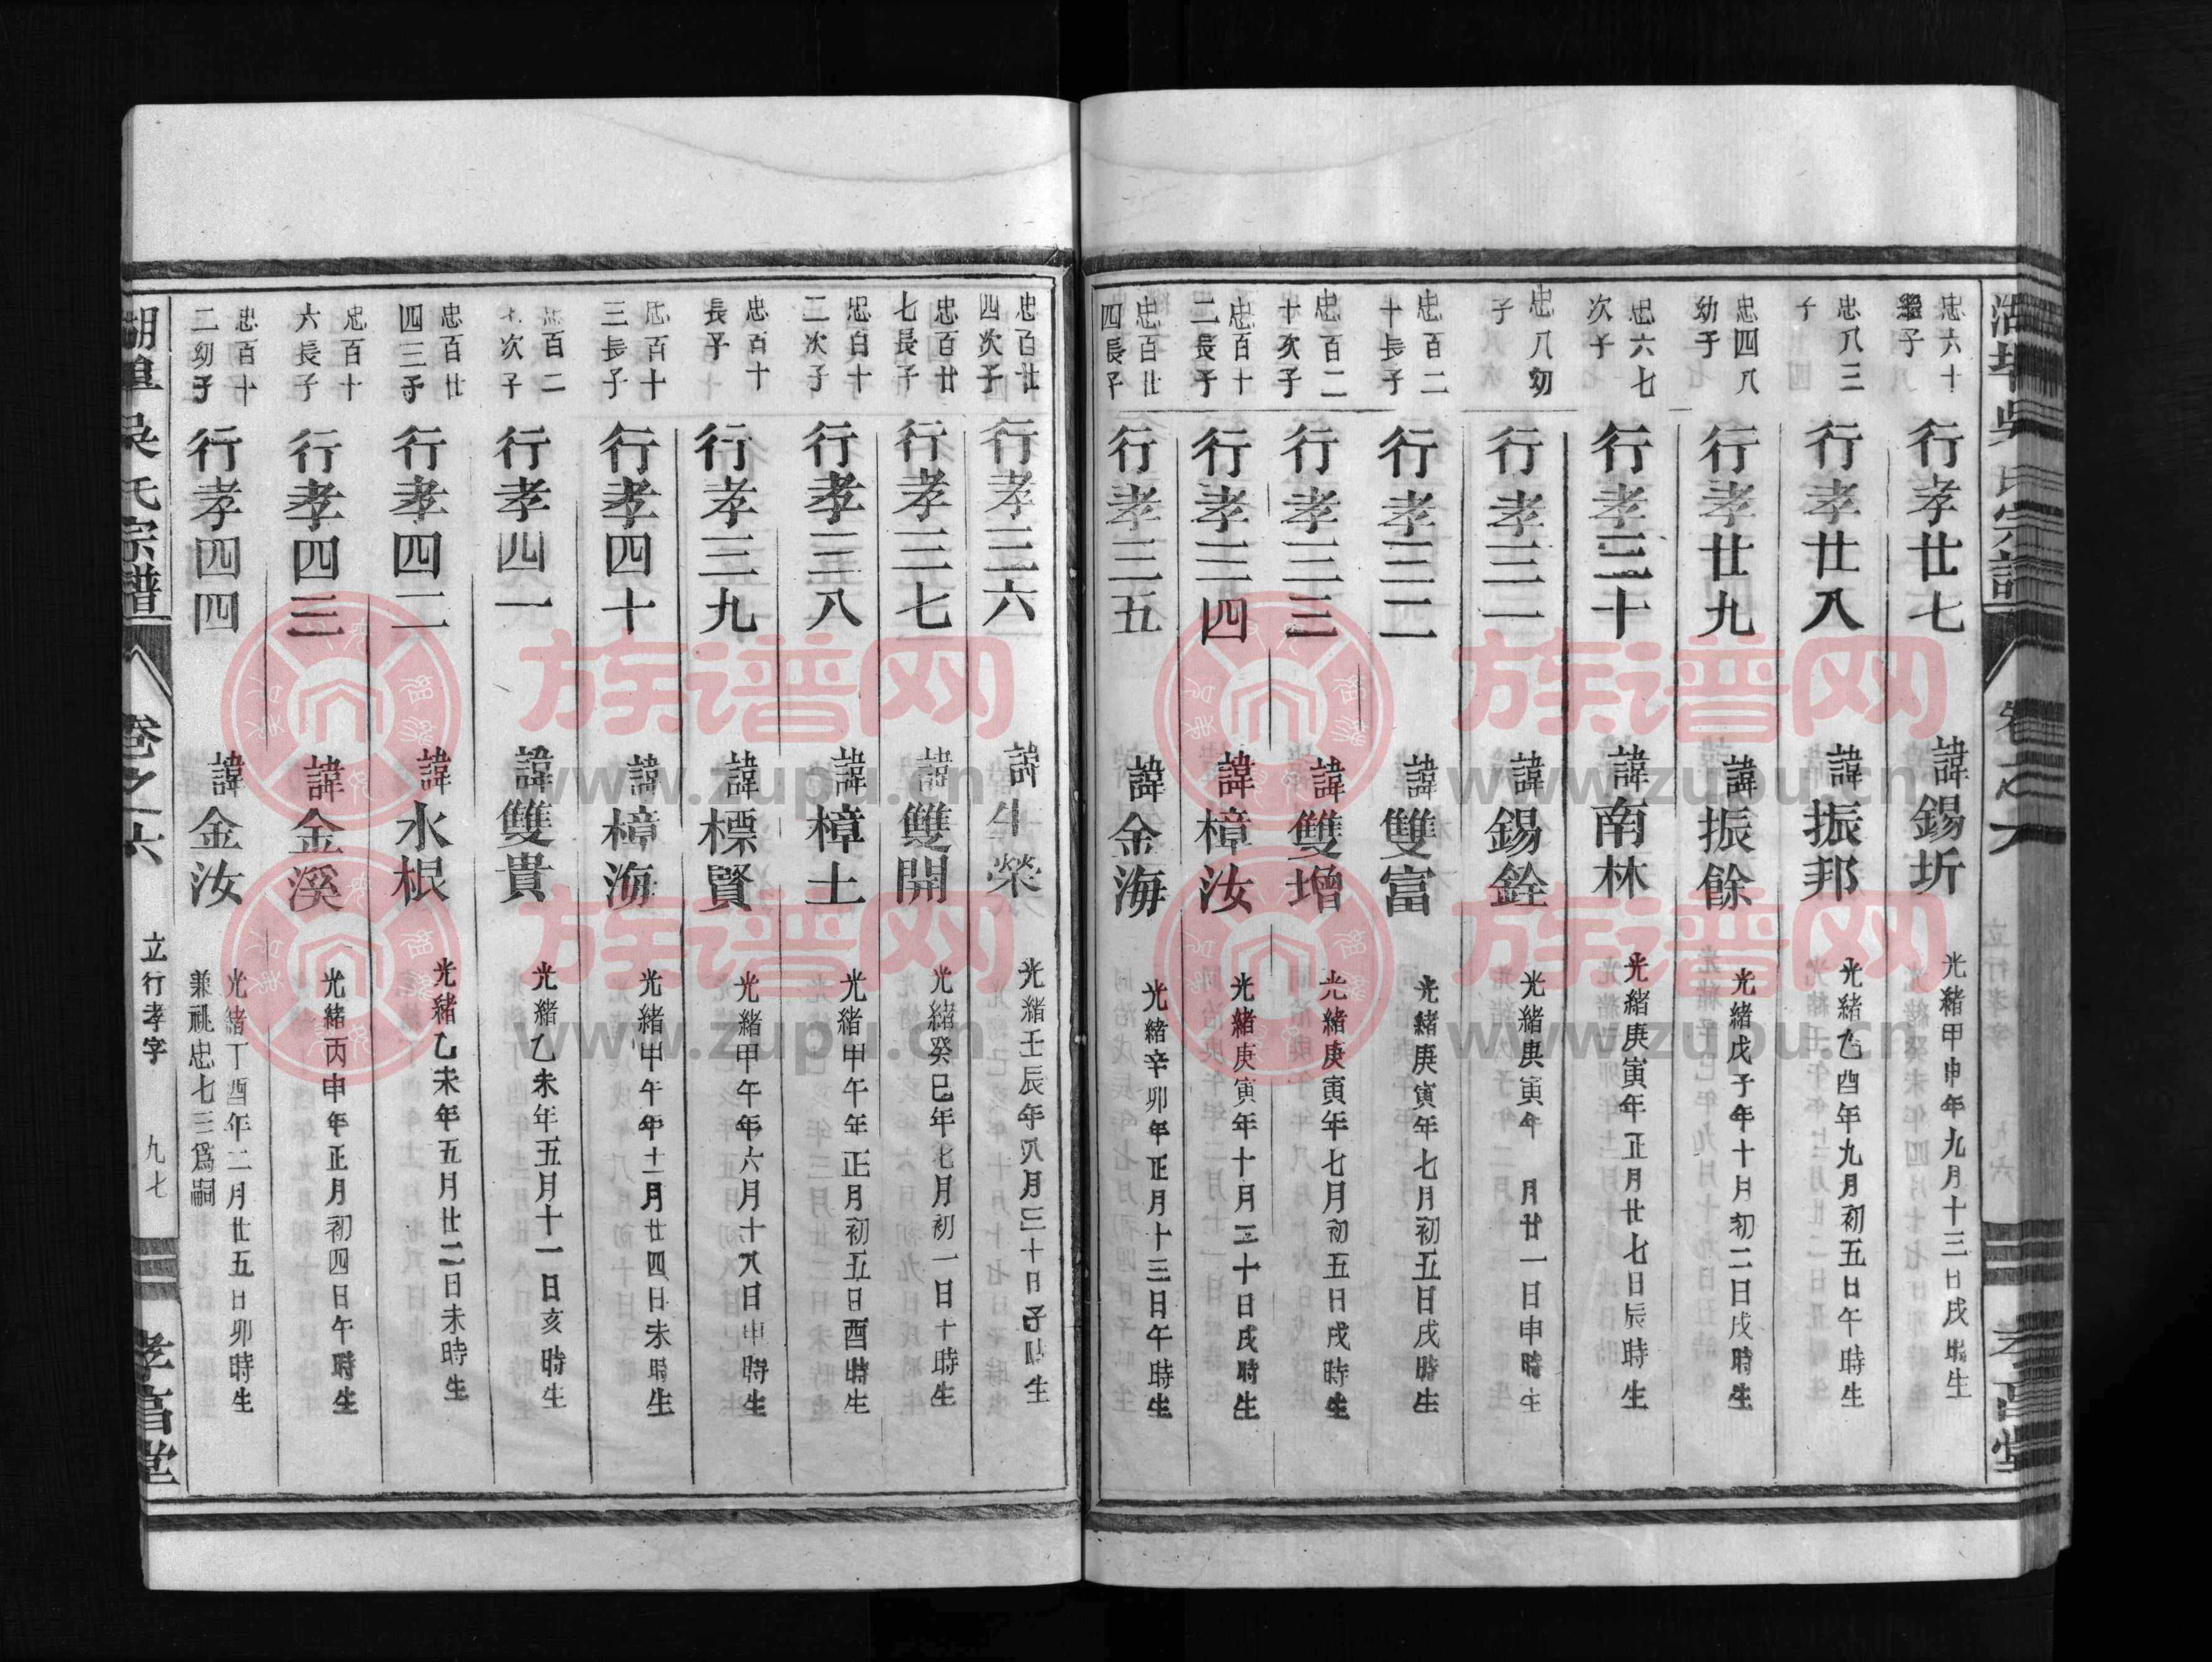 忠六十繼子 行孝廿七 諱錫圻 光緒甲申年九月十三日戌時生
忠八三子 行孝廿八 諱振邦 光緒乙酉年九月初五日午時生
忠四八幼子 行孝廿九 諱振餘 光緒戊子年十月初二日戌時生
忠六七次子 行孝三十 諱南林 光緒庚寅年正月廿七日辰時生
忠八幼子 行孝三一 諱錫銓 光緒庚寅年 月廿一日申時生
忠百二十長子 行孝三二 諱雙富 光緒庚寅年七月初五日戌時生
忠百二十次子 行孝三三 諱雙增 光緒庚寅年七月初五日戌時生
忠百十二長子 行孝三四 諱樟汝 光緒庚寅年十月三十日戌時生
忠百廿四長子 行孝三五 諱金海 光緒辛卯年正月十三日午時生
忠百廿四次子 行孝三六 諱 榮 光緒壬辰年八月三十日子時生
忠百廿七長子 行孝三七 諱雙開 光緒癸巳年七月初一日 時生
忠百十二次子 行孝三八 諱樟土 光緒甲午年正月初五日酉時生
忠百十長子 行孝三九 諱標賢 光緒甲午年六月十八日申時生
忠百十三長子 行孝四十 諱樟海 光緒甲午年十二月廿四日未時生
忠百二 次子 行孝四一 諱雙貴 光緒乙未年五月十一日亥時生
忠百廿四三子 行孝四二 諱水根 光緒乙未年五月廿二日未時生
忠百十六長子 行孝四三 諱金溪 光緒丙申年正月初四日午時生
忠百十二幼子 行孝四四 諱金汝 光緒丁酉年二月廿五日卯時生
兼祧忠七三爲嗣
吳氏宗譜 卷之六 立行孝字 九七 堂
族谱网
www.zupu.cn
族谱网
www.zupu.cn
族谱网
www.zupu.cn
族谱网
www.zupu.cn